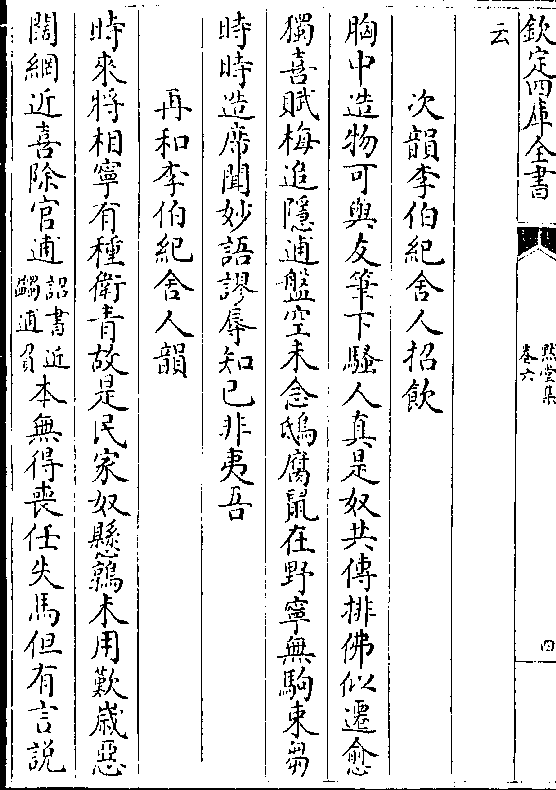 欽定四庫全書
默堂集
卷六
四
云
次韻李伯紀舍人招飲
胸中造物可與友筆下騷人真是奴共傳排佛似遷愈
獨喜賦梅追隱逋盤空未念鴟腐鼠在野寧無駒束芻
時時造席聞妙語謬辱知已非夷吾
再和李伯紀舍人韻
時來將相寧有種衛青故是民家奴懸鶉未用歎歲惡
闊網近喜除官逋詔書近蠲逋負本無得喪任失馬但有言說